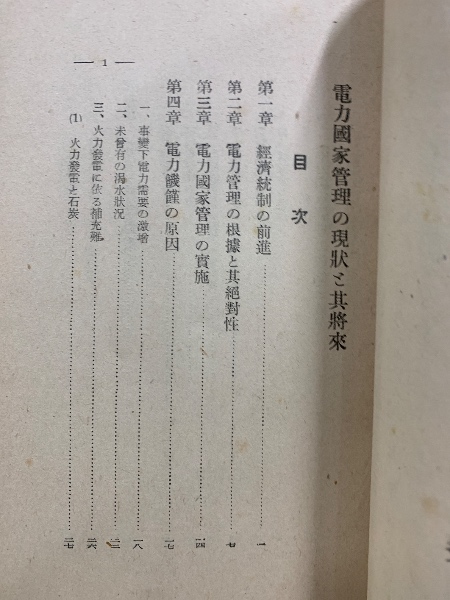 電力國家管理の現狀と其將來
目次
第一章 經濟統制の前進……一
第二章 電力管理の根據と其絕對性……七
第三章 電力國家管理の實施……一四
第四章 電力饑饉の原因……一七
一、事變下電力需要の激增……一八
二、未曾有の渴水狀況……二三
三、火力發電に依る補充難……二六
(1) 火力發電と石炭……二七
— 1 —